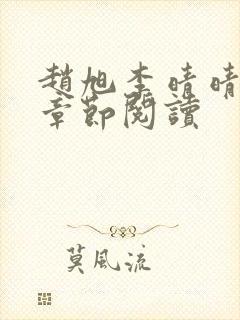 趙旭李晴晴
章節閱讀
莫風流